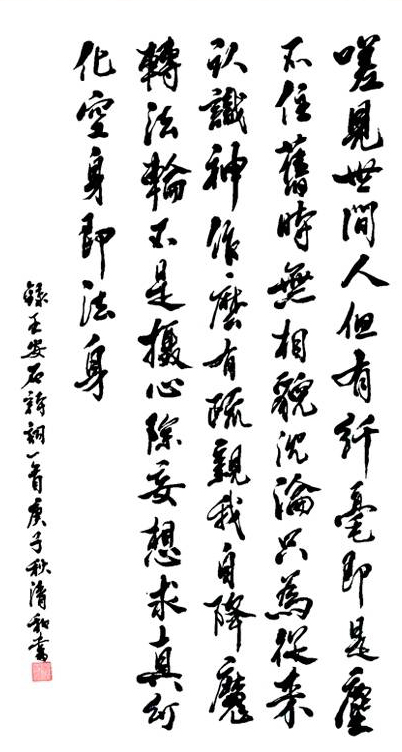 嗟見世間人但有纤毫即是塵
不住舊時無相貌沈淪只為從来
认識神作麼有疏親我自降魔
轉法輪不是攝心除妄想求真幻
化空身即法身
録王安石詩詞一首庚子秋清和書